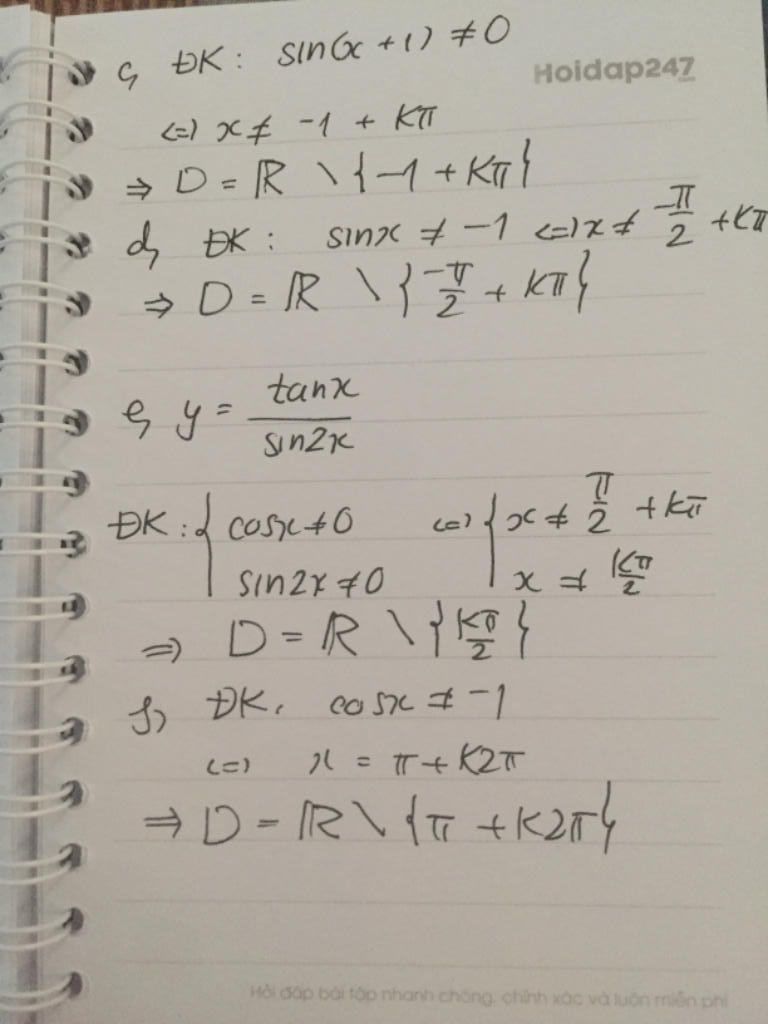 c, ĐK: sin(x + 1) ≠ 0
Hoidap247
<=> x ≠ -1 + Kπ
⇒ D = ℝ \ {-1 + Kπ}
d, ĐK: sinx ≠ -1 <=> x ≠ -π/2 + Kπ
⇒ D = ℝ \ {-π/2 + Kπ}
e, y = tanx / sin2x
ĐK: { cosx ≠ 0 <=> { x ≠ π/2 + Kπ
sin2x ≠ 0 x ≠ Kπ/2
⇒ D = ℝ \ {Kπ/2}
f, ĐK: cosx ≠ -1
<=> x = π + K2π
⇒ D = ℝ \ {π + K2π}
Hỏi đáp bài tập nhanh chóng, chính xác và luôn miễn phí